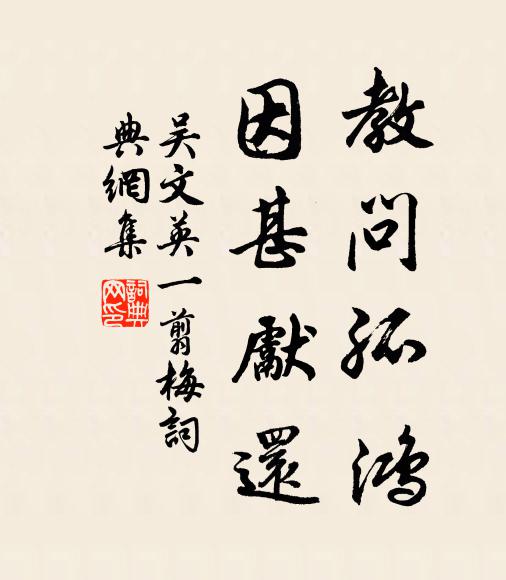 教問孤鴻
因甚獻還
吳文英一翦梅詞
典網集
詞典
网印